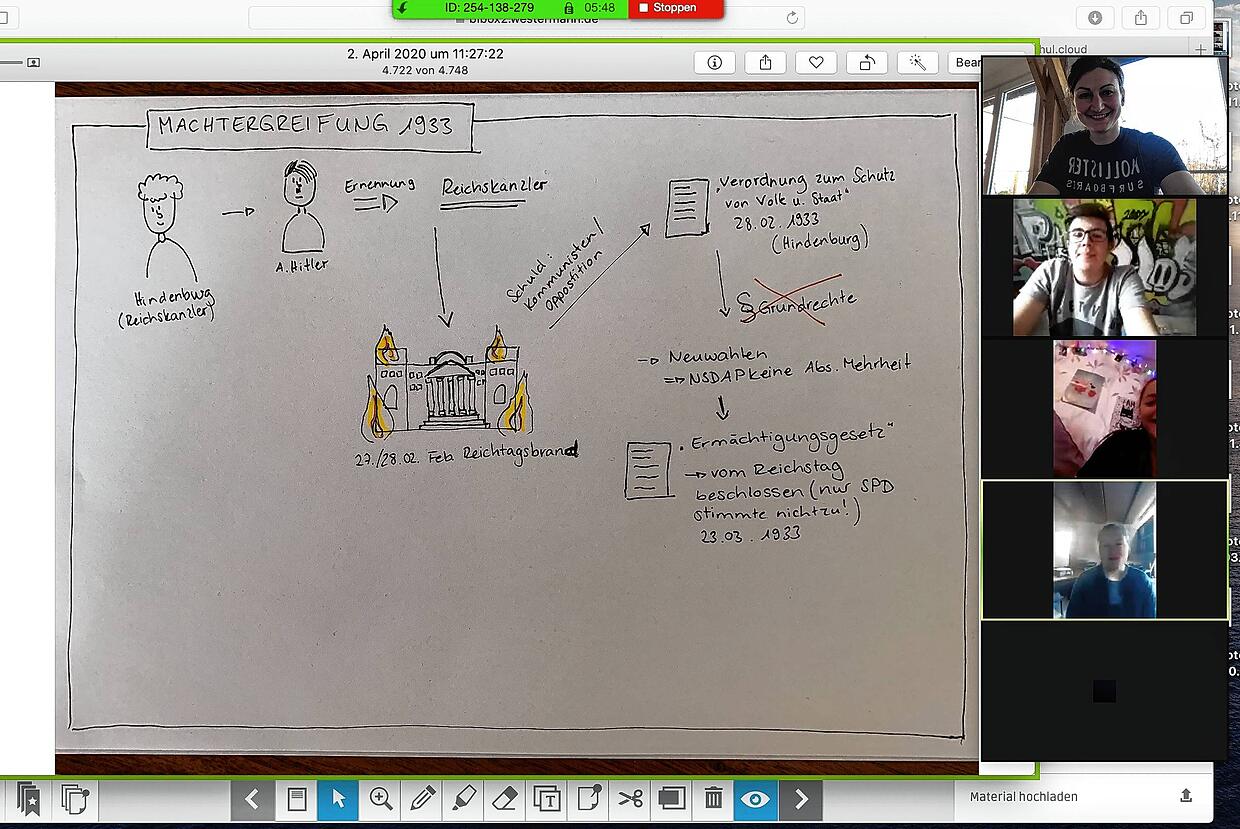 ID: 254-138-279
05:48
Stoppen
bibox2.westermann.de
2. April 2020 um 11:27:22
4.722 von 4.748
Bear
hul.cloud
MACHTERGREIFUNG 1933
Hindenburg
(Reichskanzler)
A. Hitler
Ernennung
Reichskanzler
Schuld:
Kommunisten/
Oppostition
27./28.02. Feb. Reichtagsbrand
„Verordnung zum Schutz
von Volk u. Staat"
28.02.1933
(Hindenburg)
§ Grundrechte
Neuwahlen
NSDAP keine Abs. Mehrheit
„Ermächtigungsgesetz"
vom Reichstag
beschlossen (nur SPD
stimmte nicht zu!)
23.03.1933
HOLLISTER
SURFBOARDS
Material hochladen